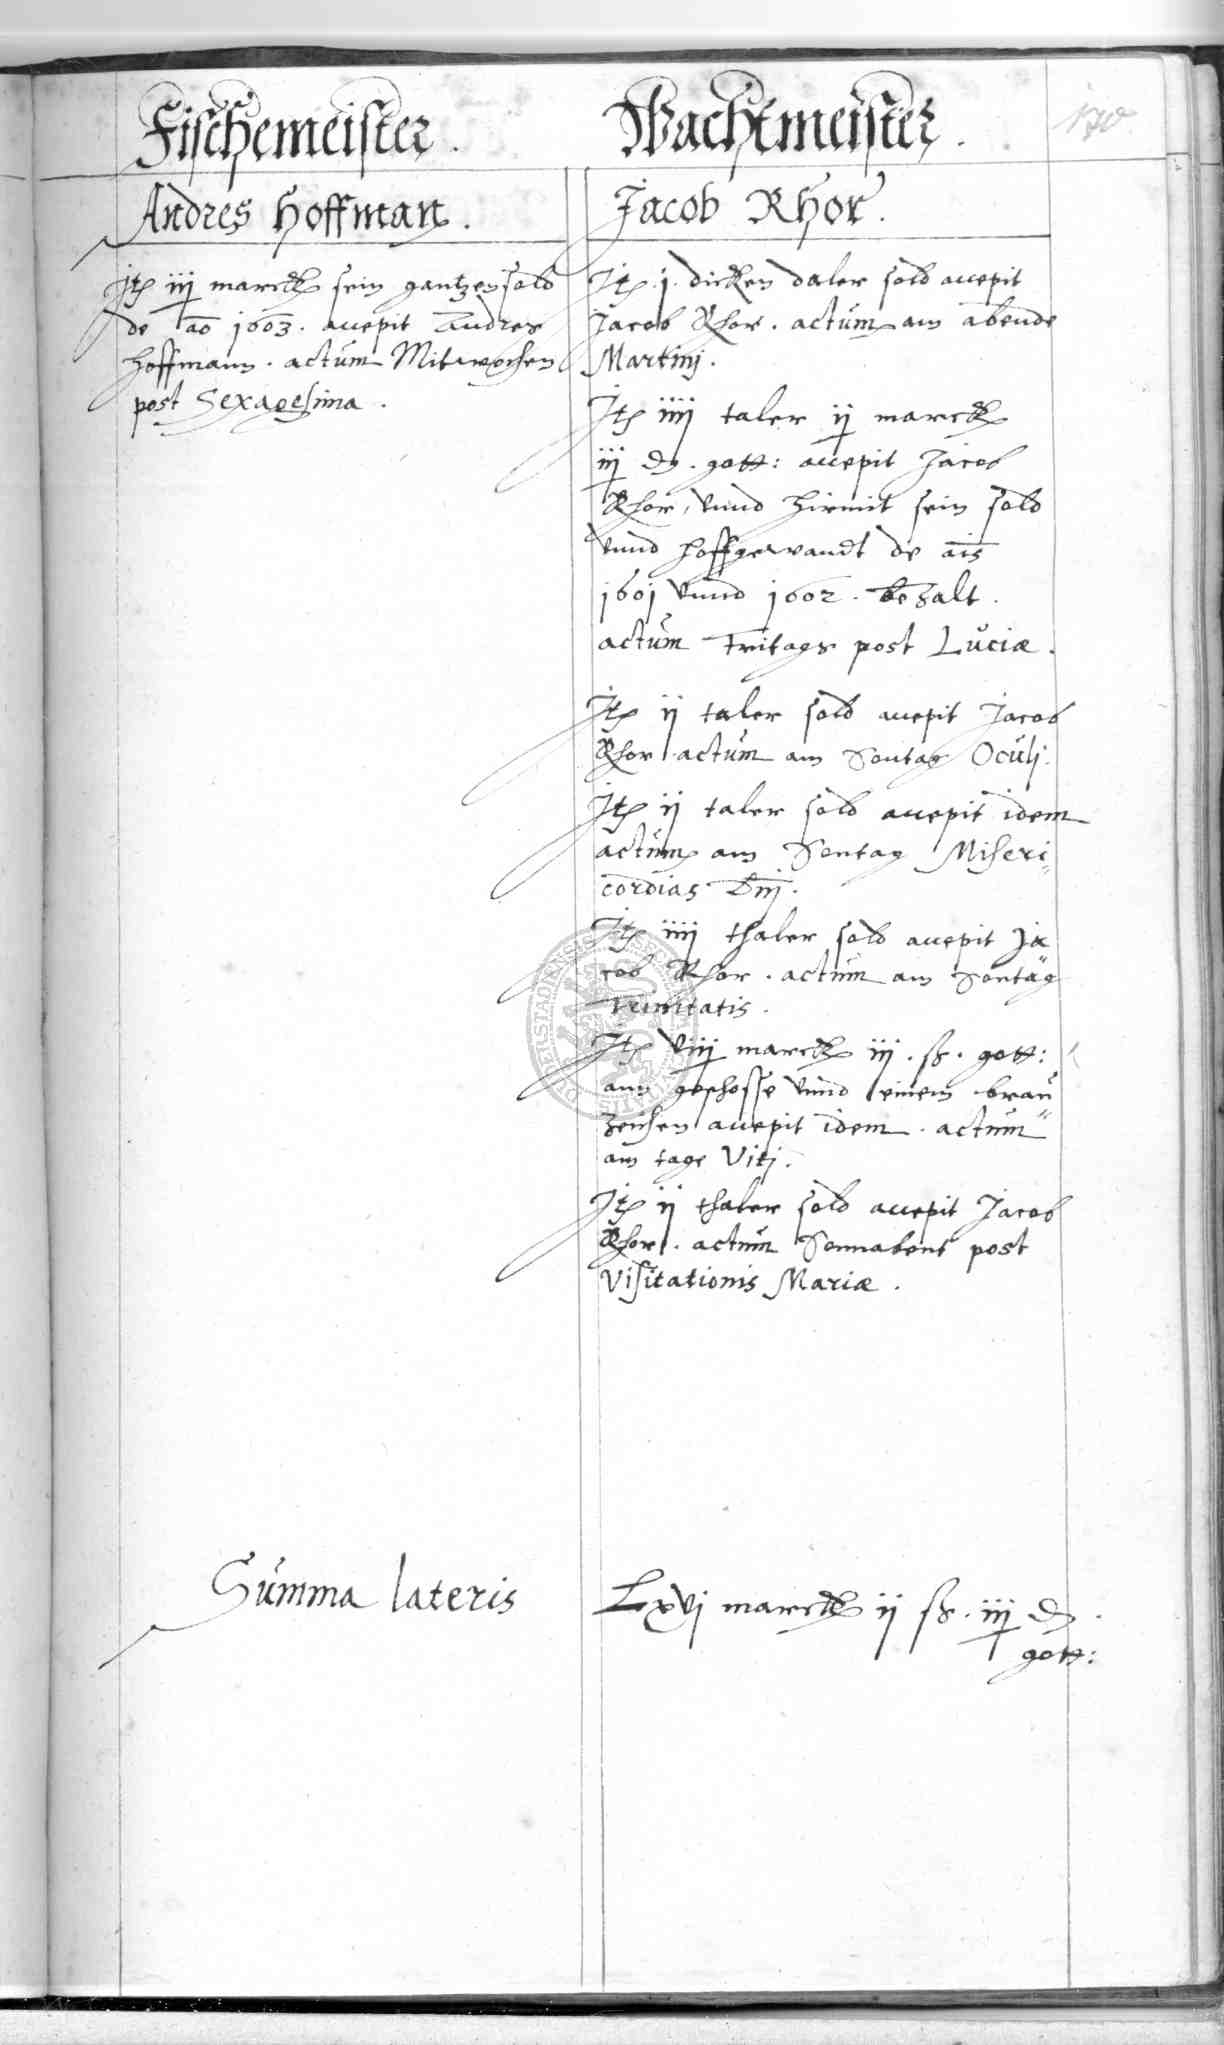 Fischemeister.
Andres Hoffman.
Jtem iij marck sein gantzen sold
de ao 1603. accepit Andres
Hoffmann. actum Mitwochen
post Sexagesima.
Wachtmeister.
Jacob Rhor.
Jtem .j. dicken daler sold accepit
Jacob Rhor. actum am abende
Martinj.
Jtem iiij taler ij marck
iij d. gott: accepit Jacob
Rhor, vnnd hirmit sein sold
vnnd hoffgewandt de ais
1601 vnnd 1602. bezalt.
actum Fritags post Luciæ.
Jtem ij taler sold accepit Jacob
Rhor actum am Sontag Oculj.
Jtem ij taler sold accepit idem
actum am Sontag Miseri
cordias Dnj.
Jtem iiij thaler sold accepit Ja
cob Rhor. actum am Sontag
Trinitatis.
Jtem viij marck iij. ß. gott:
am geschosse vnnd einem brau
zeichen accepit idem. actum
am tage Vitj.
Jtem ij thaler sold accepit Jacob
Rhor. actum Sonnabent post
Visitationis Mariæ.
Summa lateris
Lxvj marck ij ß. iij d.
gott: